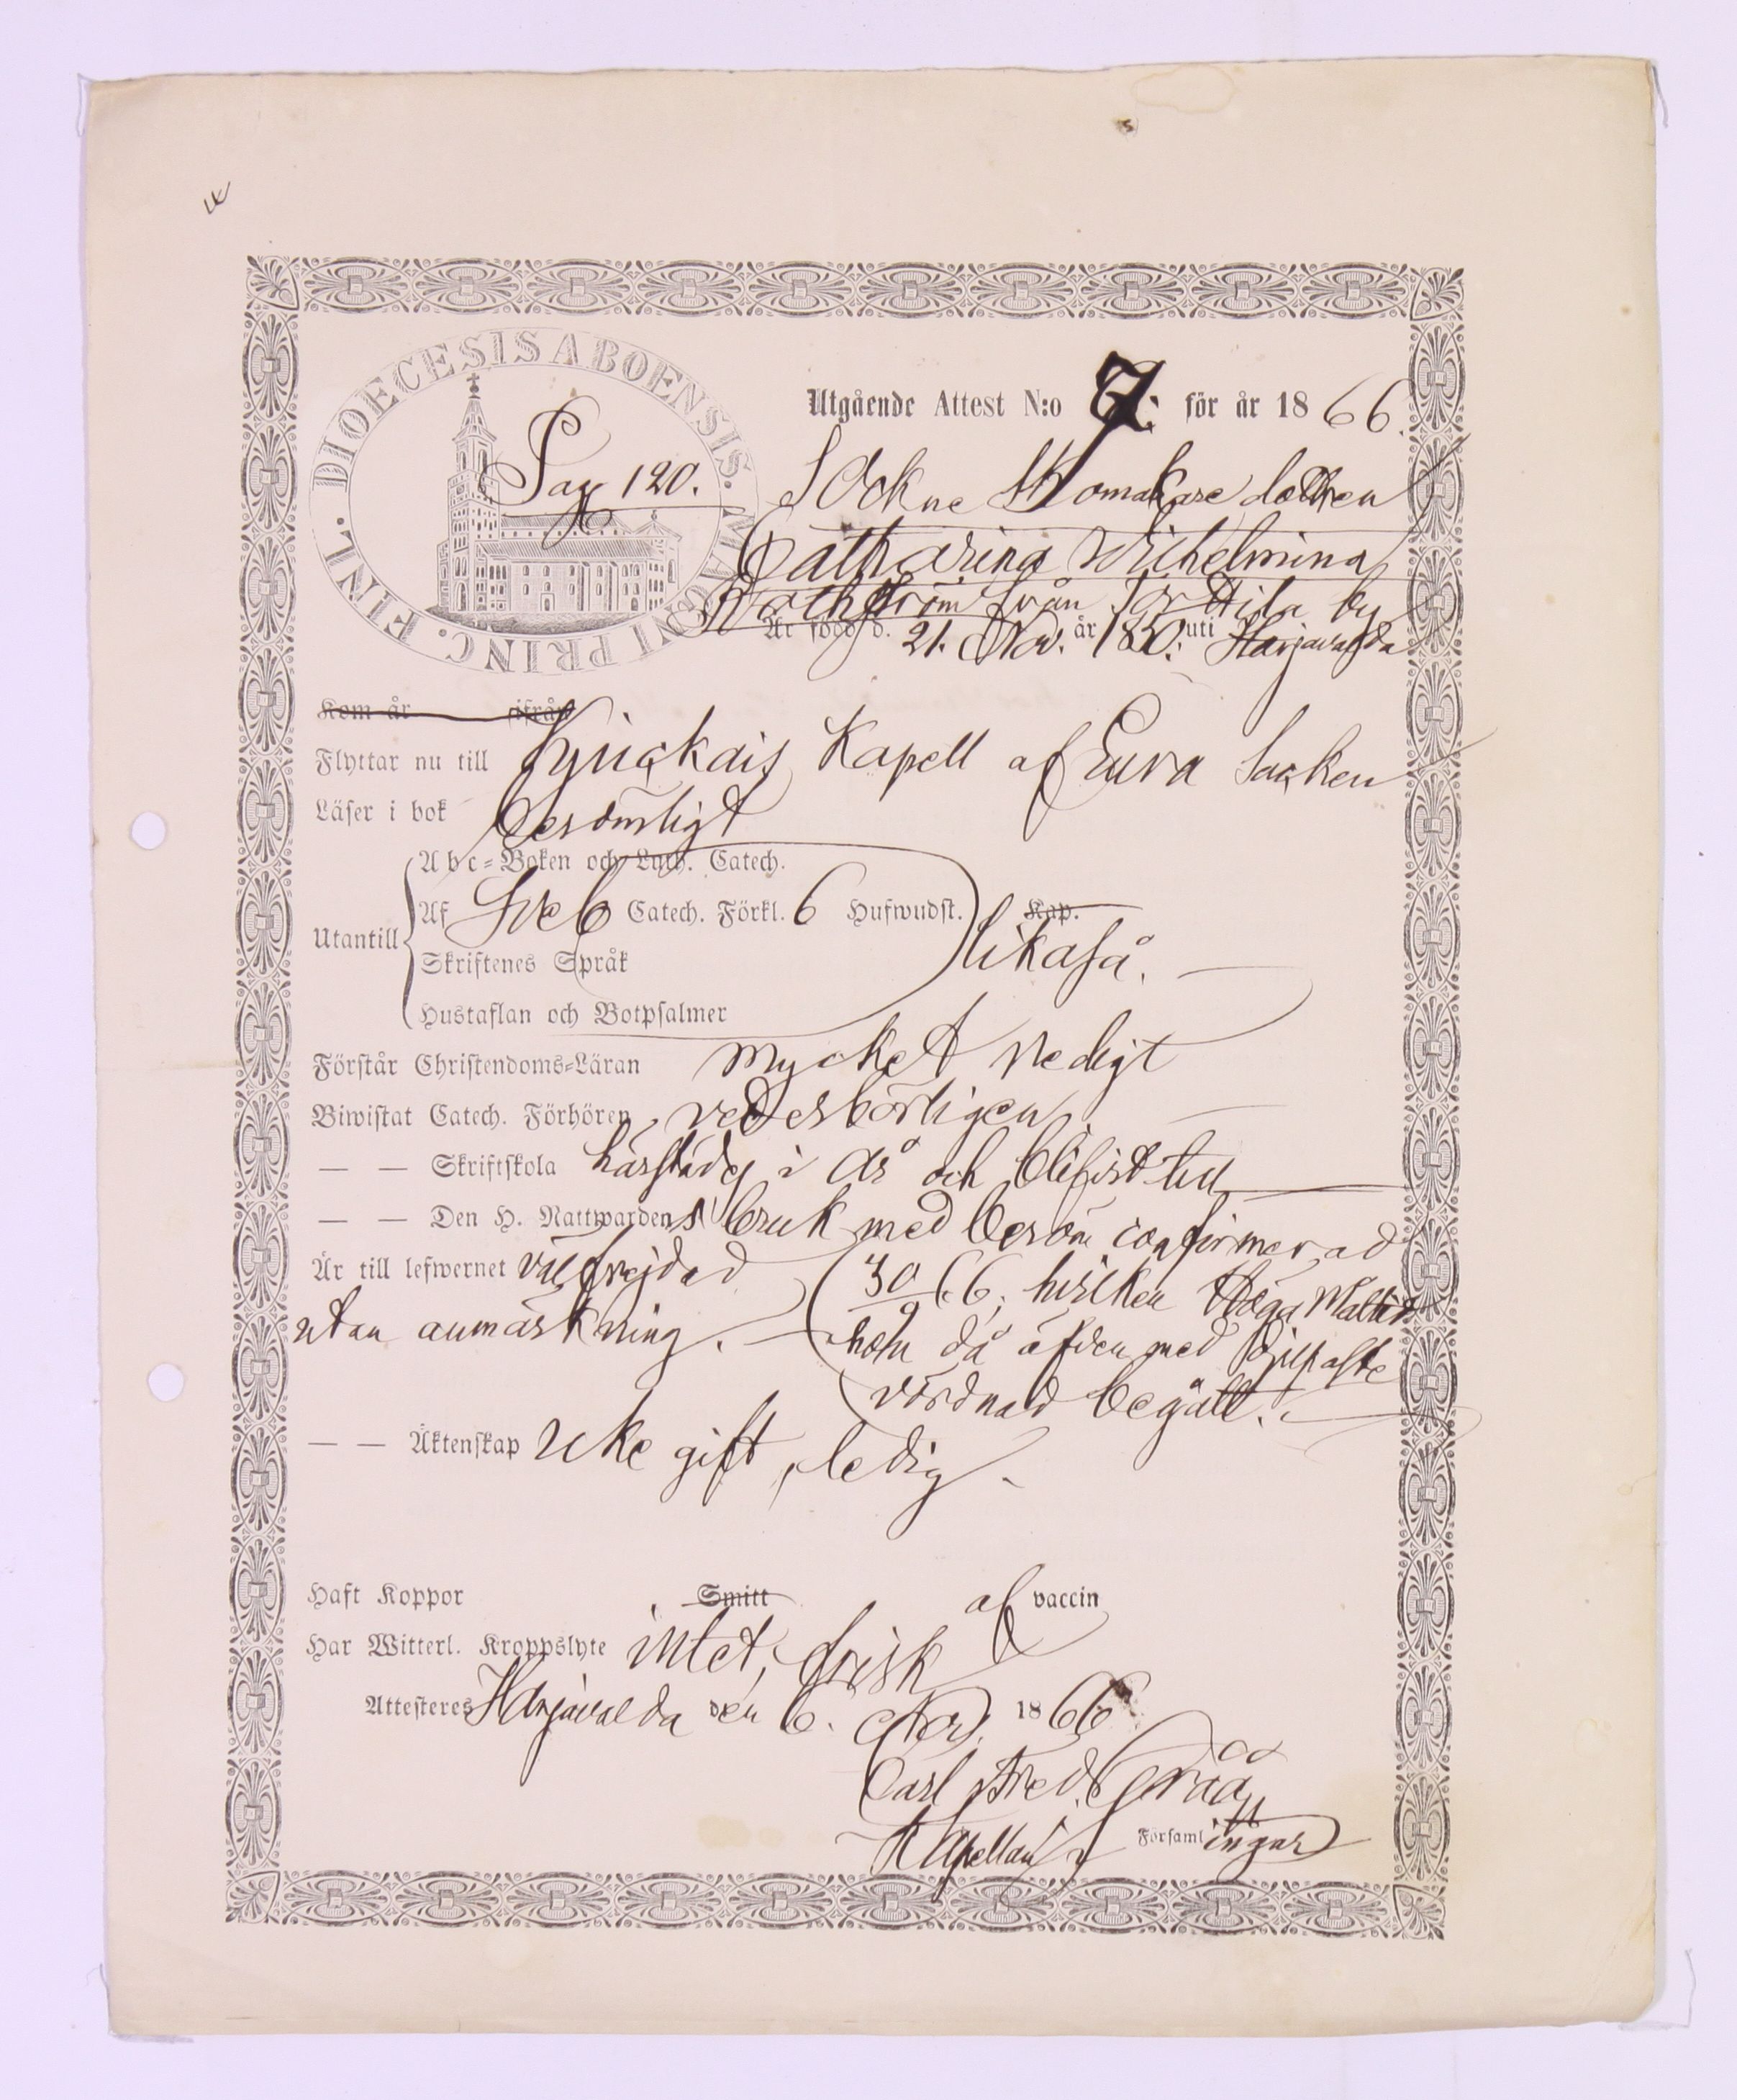 DIOECESIS ABOENSIS. MAGNI PRINC. FINL.
Pag 120.
Utgående Attest N:o 7. för år 1866.
Sockne Skomakare dottren
Catharina Wilhelmina
från Torttila by
Är född d. 21. Nov. år 1850. uti Harjavalda
Kom år ifrån
Flyttar nu till Kjuckais Kapell af Eura Socken
Läser i bok berömligt
Abc=Boken och Luth. Catech.
Af Sveb Catech. Förkl. 6 Hufwudst. Kap.
Utantill
likaså.
Skriftenes Språk
Hustaflan och Botpsalmer
Förstår Christendoms=Läran mycket redigt
Biwistat Catech. Förhören vederbörligen
— — Skriftskola härstädes i år och blifvit till
— — Den H. Nattwardens bruk med beröm confirmerad
Är till lefwernet välfrejdad 30/9 66, hvilken Höga Måltid
utan anmärkning. hon då äfven med djupaste
vördnad begått.
— — Äktenskap icke gift, ledig.
Haft Koppor Smitt af vaccin
Har Witterl. Kroppslyte intet, frisk
Attesteras Harjavalda den 6. Nov. 1866
Carl Fred.
Kapellan i Församlingar